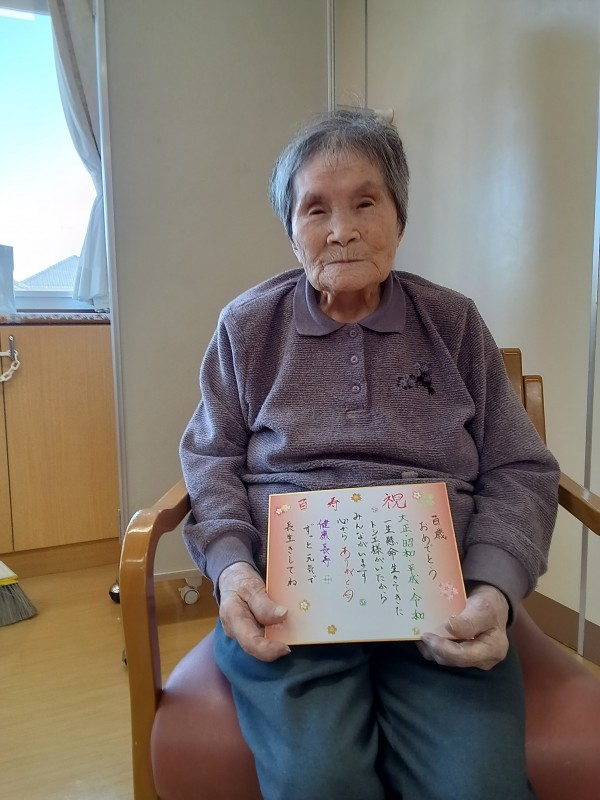 祝 百寿
百歳
おめでとう
大正・昭和・平成・令和
一生懸命生きてきた
トシエ様がいたから
みんながいます
心から ありがとう
健康長寿!!!
ずっと元気で
長生きしてね